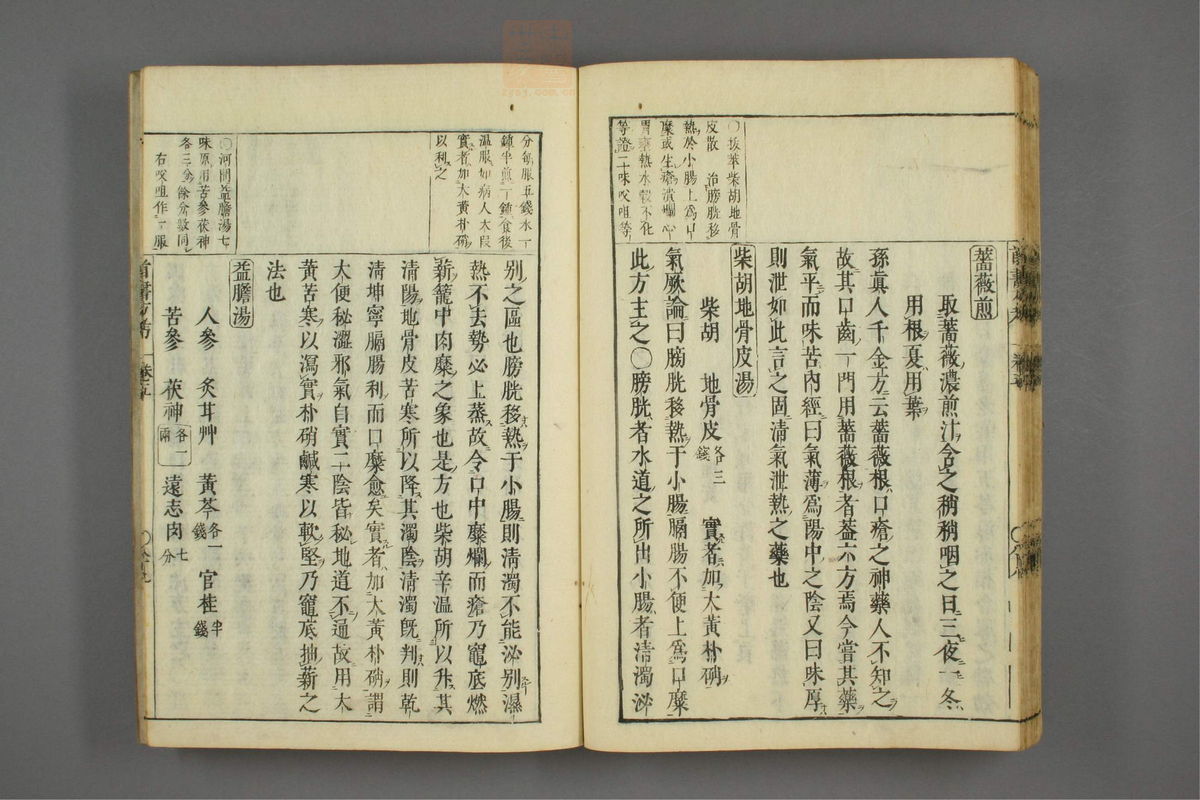 〇拔萃柴胡地骨
皮散 治膀胱移
熱於小腸上爲口
糜或生瘡潰爛心
胃壅熱水穀不化
等證二味㕮咀等
薔薇煎
取薔薇濃煎汁含之稍稍咽之日三夜一冬
用根夏用葉
孫眞人千金方云薔薇根口瘡之神藥人不知之
故其口齒一門用薔薇根者葢六方焉今嘗其藥
氣平而味苦內經曰氣薄爲陽中之陰又曰味厚
則泄如此言之固清氣泄熱之藥也
柴胡地骨皮湯
柴胡 地骨皮各三錢 實者加大黃朴硝
氣厥論曰膀胱移熱于小腸膈腸不便上爲口糜
此方主之〇膀胱者水道之所出小腸者清濁泌
分每服五錢水一
鍾半煎一鍾食後
温服如病人大叚
實者加大黄朴硝
以利之
別之區也膀胱移熱于小腸則清濁不能泌別濕
熱不去勢必上蒸故令口中糜爛而瘡乃竈底燃
薪籠中肉糜之象也是方也柴胡辛温所以升其
清陽地骨皮苦寒所以降其濁陰清濁旣判則乾
清坤寧膈腸利而口糜愈矣實者加大黄朴硝謂
大便秘澀邪氣自實二陰皆秘地道不通故用大
黃苦寒以瀉實朴硝鹹寒以軟堅乃竈底抽薪之
法也
〇河間益膽湯七
味原用苦參茯神
各三分餘分數同
右㕮咀作一服
益膽湯
人參 炙甘艸 黃芩各一錢 官桂半錢
苦參 茯神各一兩 遠志肉七分